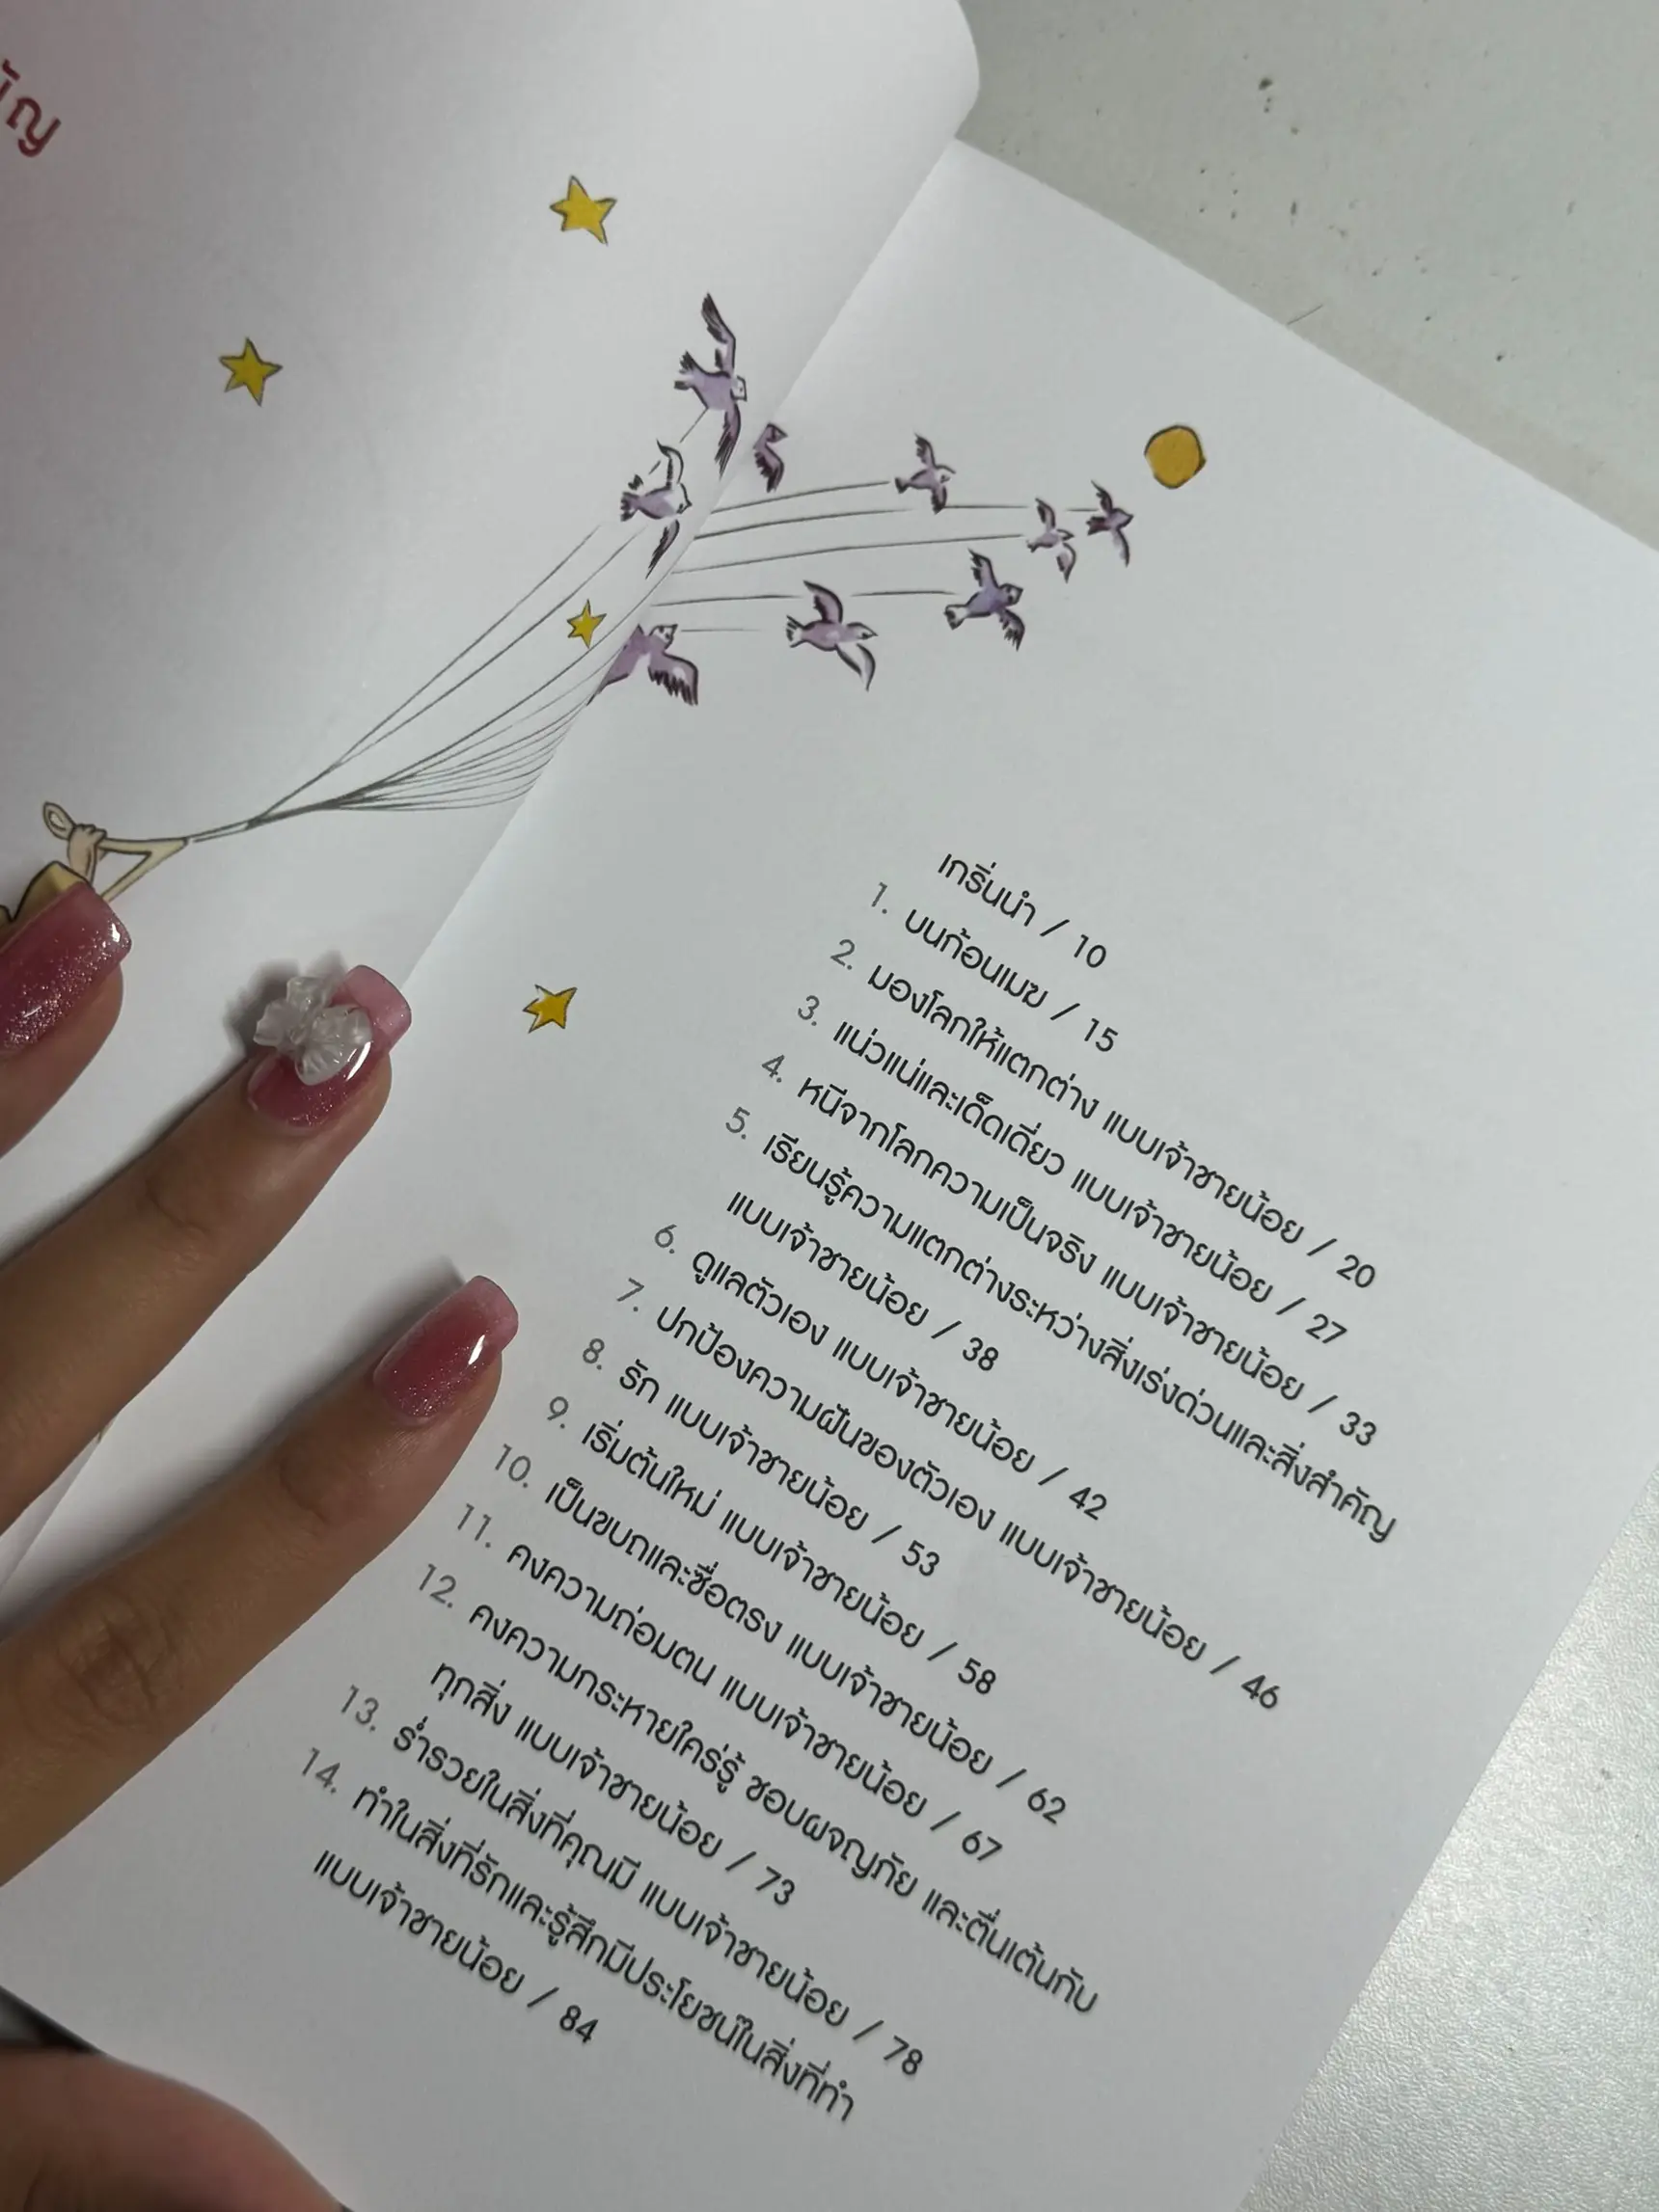 เกริ่นนำ / 10
1. บนก้อนเมฆ / 15
2. มองโลกให้แตกต่าง แบบเจ้าชายน้อย / 20
3. แน่วแน่และเด็ดเดี่ยว แบบเจ้าชายน้อย / 27
4. หนีจากโลกความเป็นจริง แบบเจ้าชายน้อย / 33
5. เรียนรู้ความแตกต่างระหว่างสิ่งเร่งด่วนและสิ่งสำคัญ
แบบเจ้าชายน้อย / 38
6. ดูแลตัวเอง แบบเจ้าชายน้อย / 42
7. ปกป้องความฝันของตัวเอง แบบเจ้าชายน้อย / 46
8. รัก แบบเจ้าชายน้อย / 53
9. เริ่มต้นใหม่ แบบเจ้าชายน้อย / 58
10. เป็นขบถและซื่อตรง แบบเจ้าชายน้อย / 62
11. คงความถ่อมตน แบบเจ้าชายน้อย / 67
12. คงความกระหายใคร่รู้ ชอบผจญภัย และตื่นเต้นกับ
ทุกสิ่ง แบบเจ้าชายน้อย / 73
13. ร่ำรวยในสิ่งที่คุณมี แบบเจ้าชายน้อย / 78
14. ทำในสิ่งที่รักและรู้สึกมีประโยชน์ในสิ่งที่ทำ
แบบเจ้าชายน้อย / 84